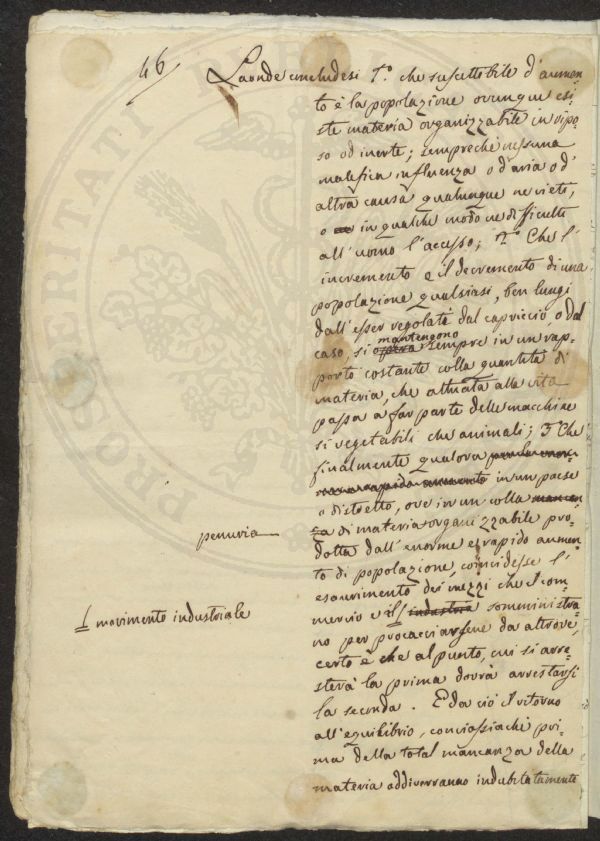 46
Laonde concludesi 1.º che suscettibile d'aumen-
to è la popolazione ovunque esi-
ste materia organizzabile in ripo-
so od inerte; sempreché nessuna
malefica influenza o d'aria o d'
altra causa qualunque ne vieti,
o in qualche modo ne difficulti
all'uomo l'accesso; 2.º Che l'
incremento e il decremento di una
popolazione qualsiasi, ben lungi
dall'esser regolati dal capriccio, o dal
mantengono
caso, si sempre in un rap-
porto costante colla quantità di
materia, che attuata alla vita
passa a far parte delle macchine
sì vegetabili che animali; 3.º Che
finalmente qualora
in un paese
o distretto, ove in un colla
penuria
di materia organizzabile pro-
dotta dall'enorme e rapido aumen-
to di popolazione, coincidesse l'
esaurimento dei mezzi che il com-
mercio e il industria somministra-
movimento industriale
no per procacciarsene da altrove,
certo è che al punto, cui si arre-
sterà la prima dovrà arrestarsi
la seconda. E da ciò il ritorno
all'equilibrio, conciossiaché pri-
ma della total mancanza della
materia addiverranno indubitatamente